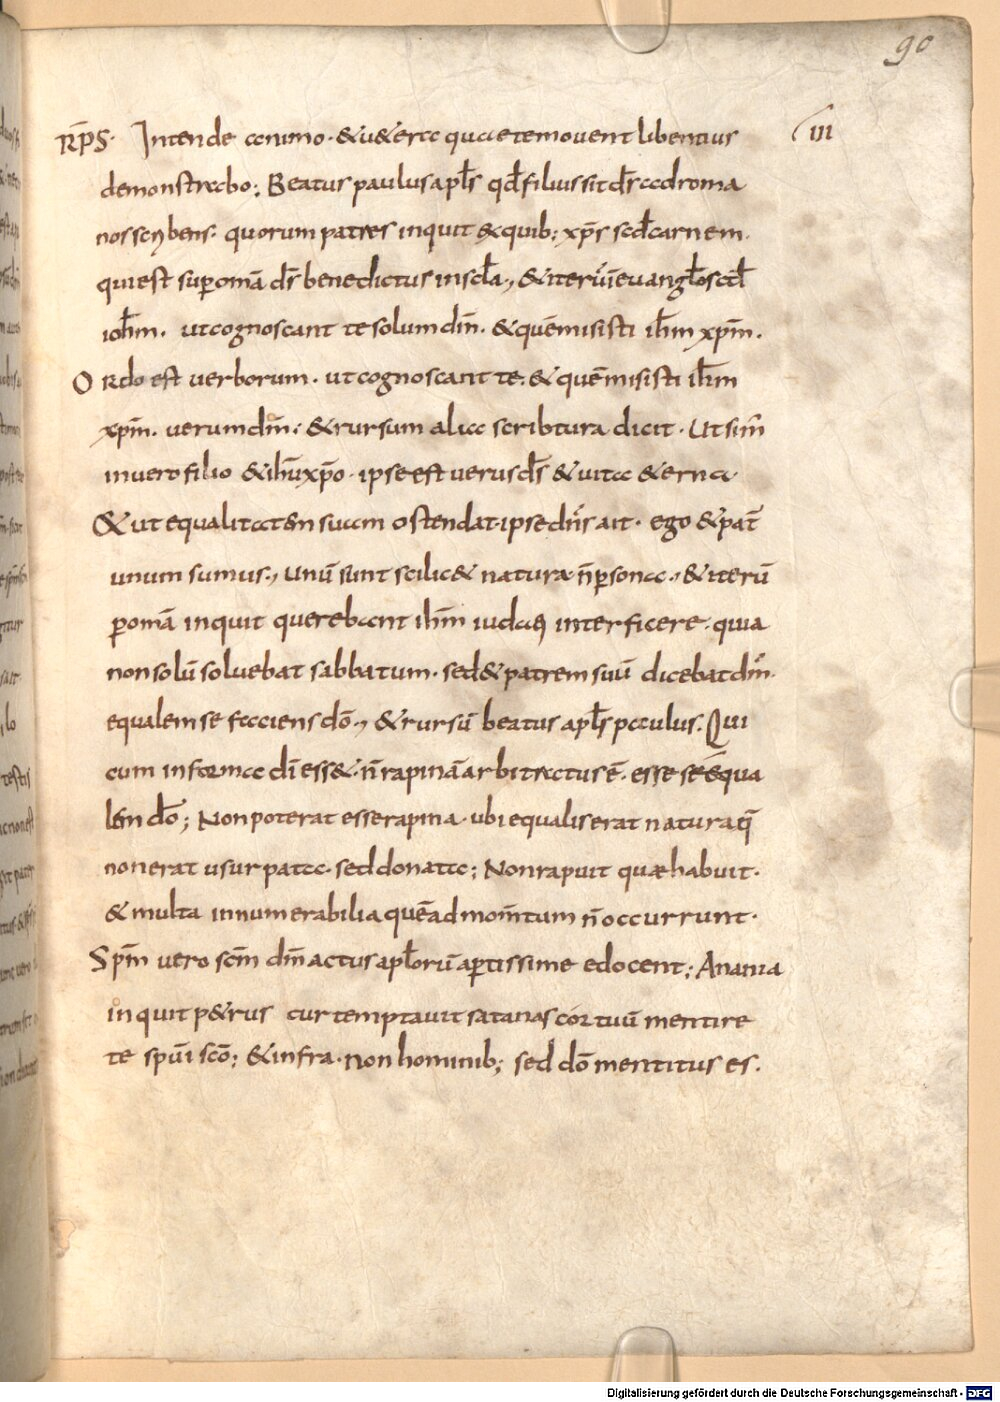 90
RP̄S· Intende animo· &u&erea quaetemouent libentius
III
demonstrabo; Beatus paulusapłs qđfiliussitdr̄adroma
nosscribens· quorum patres inquit &exquib; xp̄s scđcarnem·
quiest sup̄omā dr̄ benedictus inscła·, &iterūevangłoscđ
ioħm· utcognoscant tesolumdm̄· &quēmisisti iħm xp̄m·
Ordo est verborum· utcognoscant te· & quēmisisti iħm
xp̄m· verumdm̄; &rursum alia scribtura dicit· Utsim̄
inverofilio &iħuxp̄o· ipseest verusds̄ & uita &erna·
&ut equalitat&m suam ostendat· ipsedn̄s ait· ego &pat̄
unum sumus·, unū sunt scilic& natura n̄p̄sona·, &iterū
p̄omā inquit querebant iħm iudaei interficere· quia
nonsolū soluebat sabbatum· sed&patrem suū dicebatdm̄·
equalemse faciensdō·, &rursū beatus apłs paulus· Qui
cum informa dī ess&· n̄rapinā arbitratusē· esse seequa
lem dō; Nonpoterat esserapina· ubi equaliserat naturaq̄
nonerat usurpata· seddonata; Nonrapuit quaehabuit·
& multa innumerabilia quēadmom̄tum n̄occurrunt·
Sp̄m vero scm̄ dm̄actusapłorūap̄tissime edocent; Anania
inquit p&rus cur temptauit satanas cortuū mentire
te spūi scō; &infra· non hominib; sed dō mentitus es·
Digitalisierung gefördert durch die Deutsche Forschungsgemeinschaft - DFG